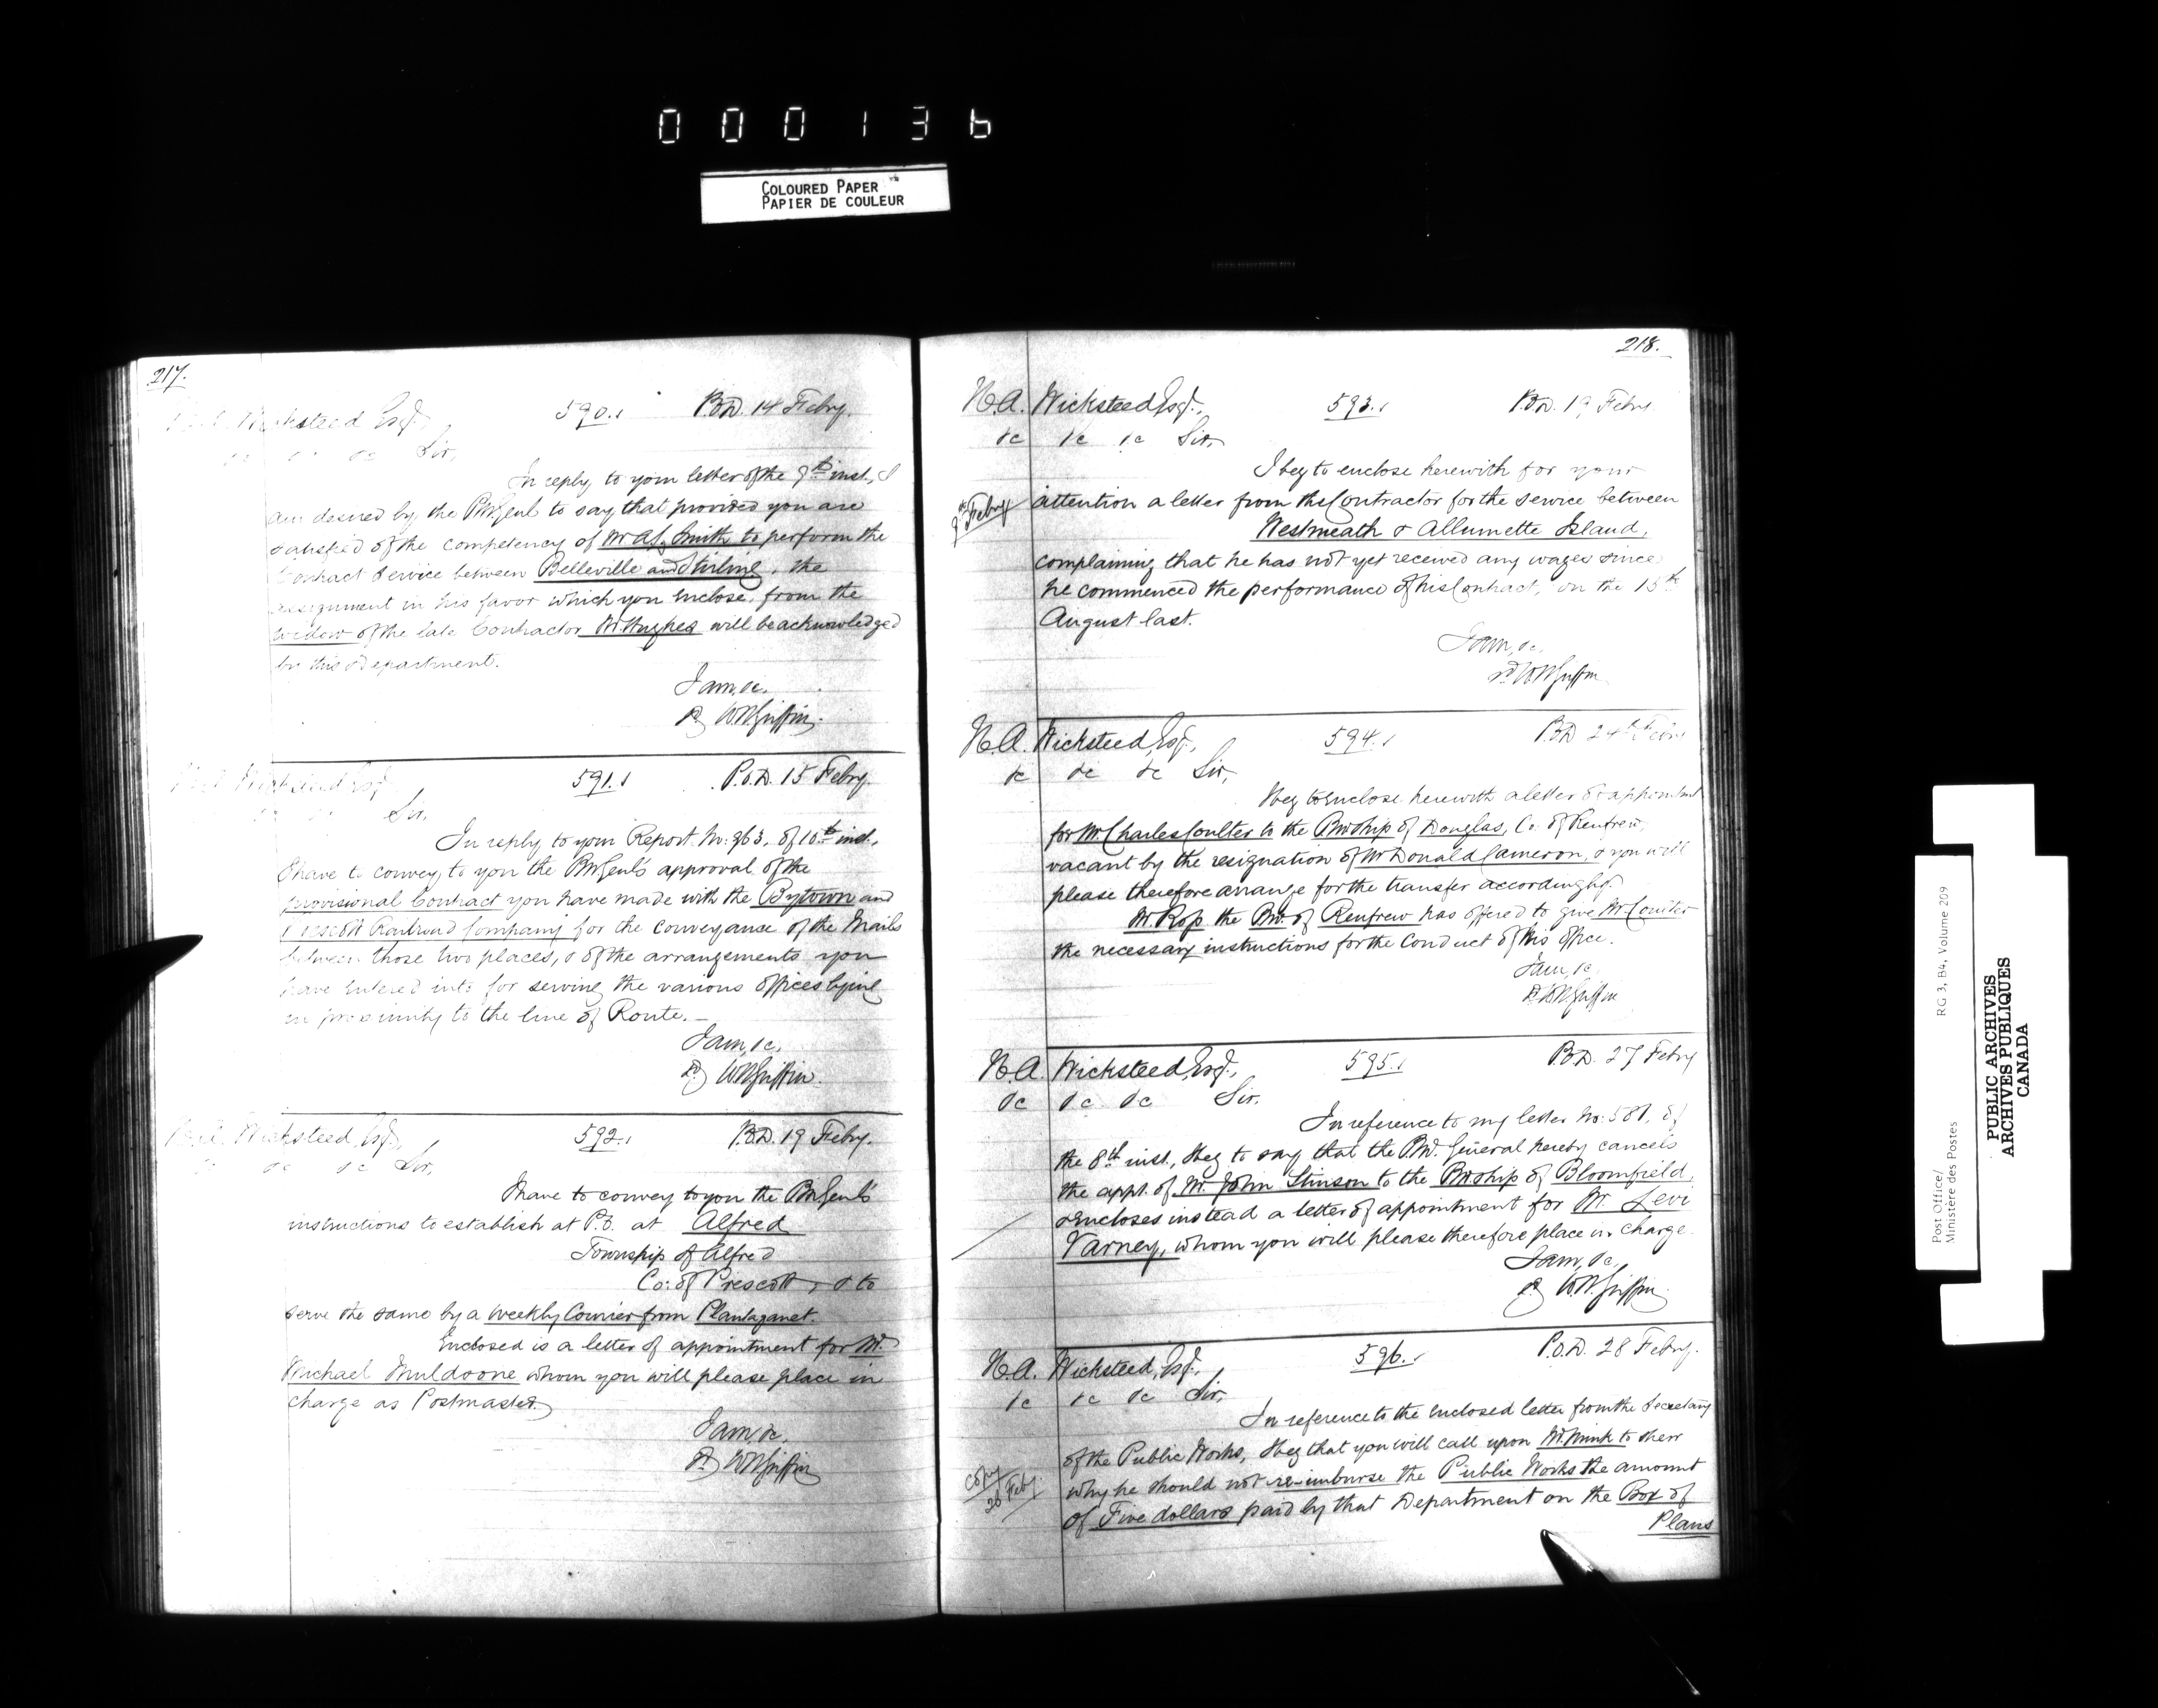 000136
COLOURED PAPER
PAPIER DE COULEUR
217.
Wicksteed Esq. 590. P.O.D. 14 Febry.
Sir,
In reply to your letter of the 9th inst., I
am desired by the P.M. Genl to say that provided you are
satisfied of the competency of Mr A.S. Smith to perform the
Contract Service between Belleville and Stirling, the
assignment in his favor which you enclose, from the
widow of the late Contractor Mr Hughes will be acknowledged
by this Department.
I am, &c.
W.H. Griffin.
Wicksteed Esq. 591. P.O.D. 15 Febry.
Sir,
In reply to your Report No: 363, of 10th inst.,
I have to convey to you the P.M. Genl's approval of the
provisional Contract you have made with the Bytown and
Prescott Railroad Company for the conveyance of the Mails
between those two places, & of the arrangements you
have entered into for serving the various offices lying
in proximity to the line of Route.—
I am, &c.
W.H. Griffin.
Wicksteed, Esq., 592. P.O.D. 19 Febry.
&c &c Sir,
I have to convey to you the P.M. Genl's
instructions to establish at P.O. at Alfred
Township of Alfred
Co: of Prescott, & to
serve the same by a Weekly Courier from Plantaganet.
Enclosed is a letter of appointment for Mr.
Michael Muldoone whom you will please place in
charge as Postmaster.
I am, &c.
W.H. Griffin
218.
N.A. Wicksteed, Esq., 593. P.O.D. 19 Febry.
&c &c &c Sir,
I beg to enclose herewith for your
9th Febry
attention a letter from the Contractor for the service between
Westmeath & Allumette Island,
complaining that he has not yet received any wages since
he commenced the performance of his Contract, on the 15th
August last.
I am, &c.
W.H. Griffin
N.A. Wicksteed, Esq., 594. P.O.D. 24th Febry
&c &c &c Sir,
I beg to enclose herewith a letter of appointment
for Mr. Charles Coulter to the P.M.ship of Douglas, Co. of Renfrew,
vacant by the resignation of Mr Donald Cameron, & you will
please therefore arrange for the transfer accordingly.
Mr. Ross the P.M. of Renfrew has offered to give Mr. Coulter
the necessary instructions for the conduct of his office.
I am, &c.
W.H. Griffin
N.A. Wicksteed, Esq., 595. P.O.D. 27 Febry
&c &c &c Sir.
In reference to my letter No: 581, of
the 8th inst., I beg to say that the P.M. General hereby cancels
the appt. of Mr. John Stinson to the P.M.ship of Bloomfield,
& encloses instead a letter of appointment for Mr. Levi
Varney, whom you will please therefore place in charge.
I am, &c.
W.H. Griffin.
N.A. Wicksteed, Esq., 596. P.O.D. 28 Febry.
&c &c &c Sir,
In reference to the enclosed letter from the Secretary
of the Public Works, I beg that you will call upon Mr. Mink to shew
Copy
26 Feby
why he should not re-imburse the Public Works the amount
of Five dollars paid by that Department on the Box of
Plans
Post Office/
Ministère des Postes
RG 3, B4, Volume 209
PUBLIC ARCHIVES
ARCHIVES PUBLIQUES
CANADA